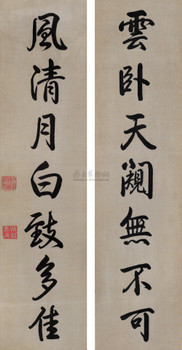 雲卧天闚無不可
風清月白致多佳